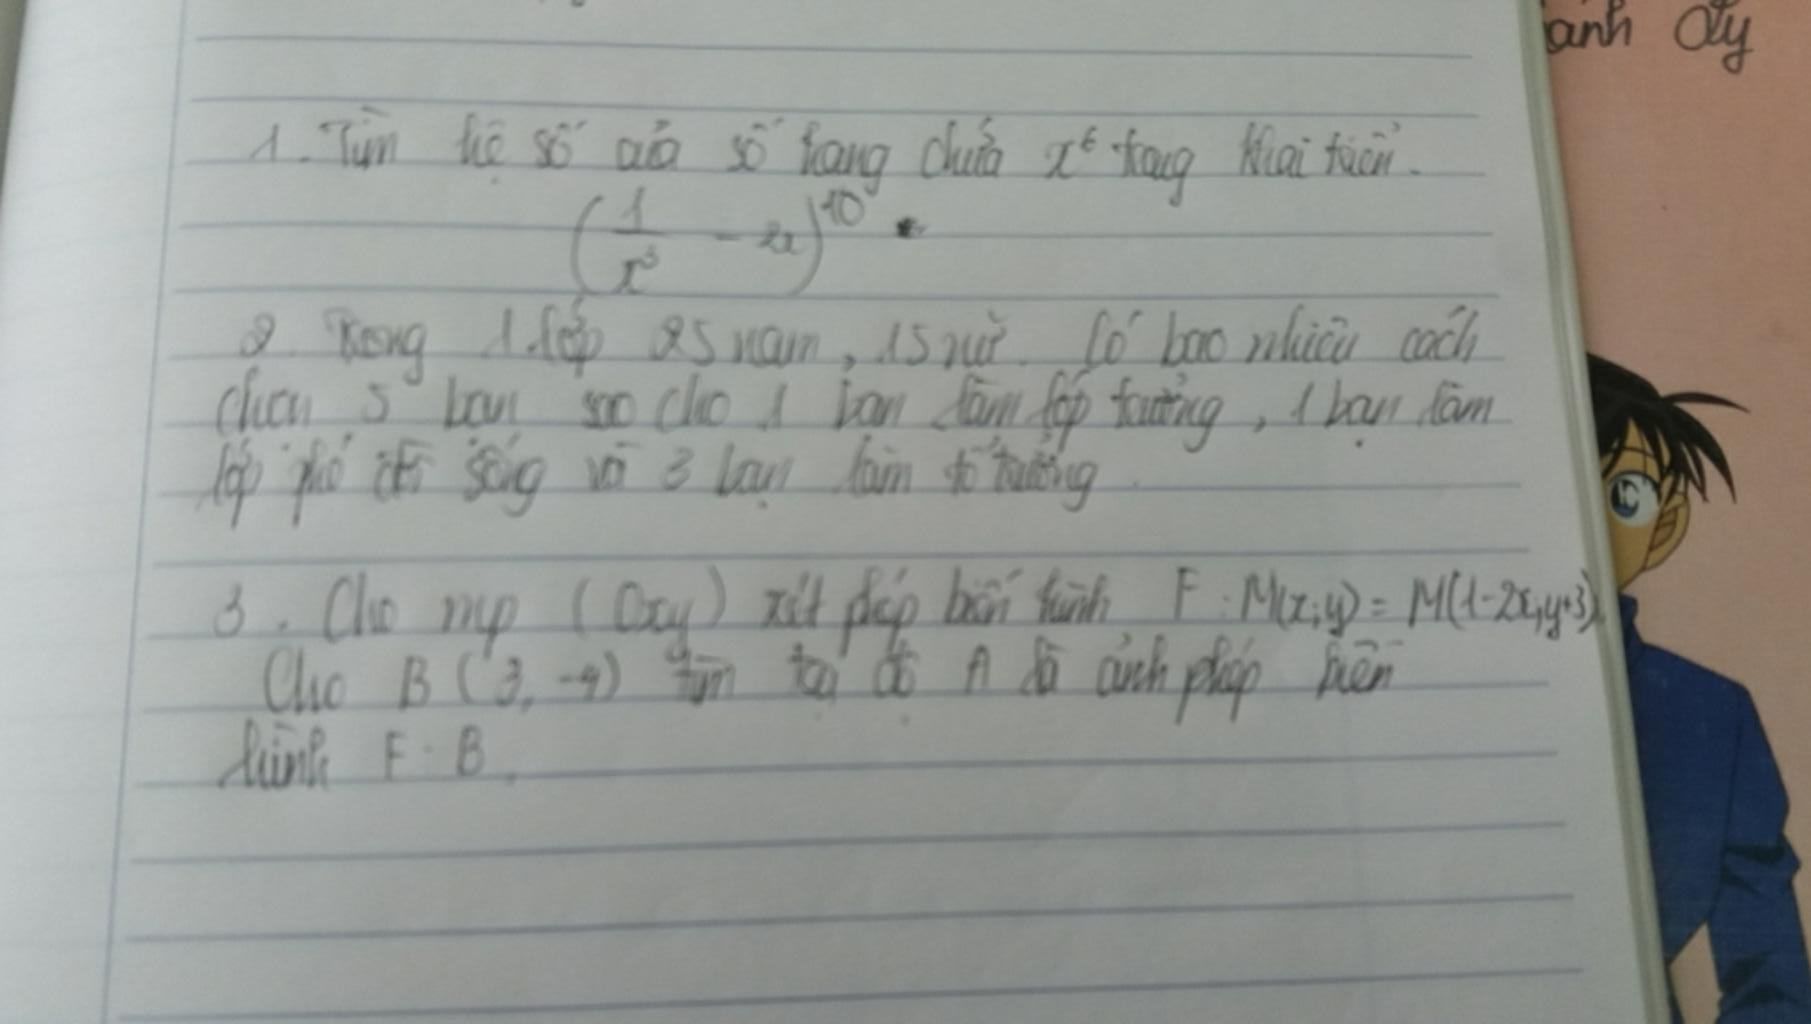 ảnh Oxy
1. Tìm hệ số của số hạng chứa x⁶ trong khai triển.
(1/x³ - 2x)¹⁰
2. Trong 1 lớp 25 nam, 15 nữ. Có bao nhiêu cách
chọn 5 bạn sao cho 1 bạn làm lớp trưởng, 1 bạn làm
lớp phó đời sống và 3 bạn làm tổ trưởng
3. Cho mp (Oxy) xét phép biến hình F: M(x;y) = M(1-2x, y+3).
Cho B(3, -4) tìm tọa độ A là ảnh phép biến
hình F. B.